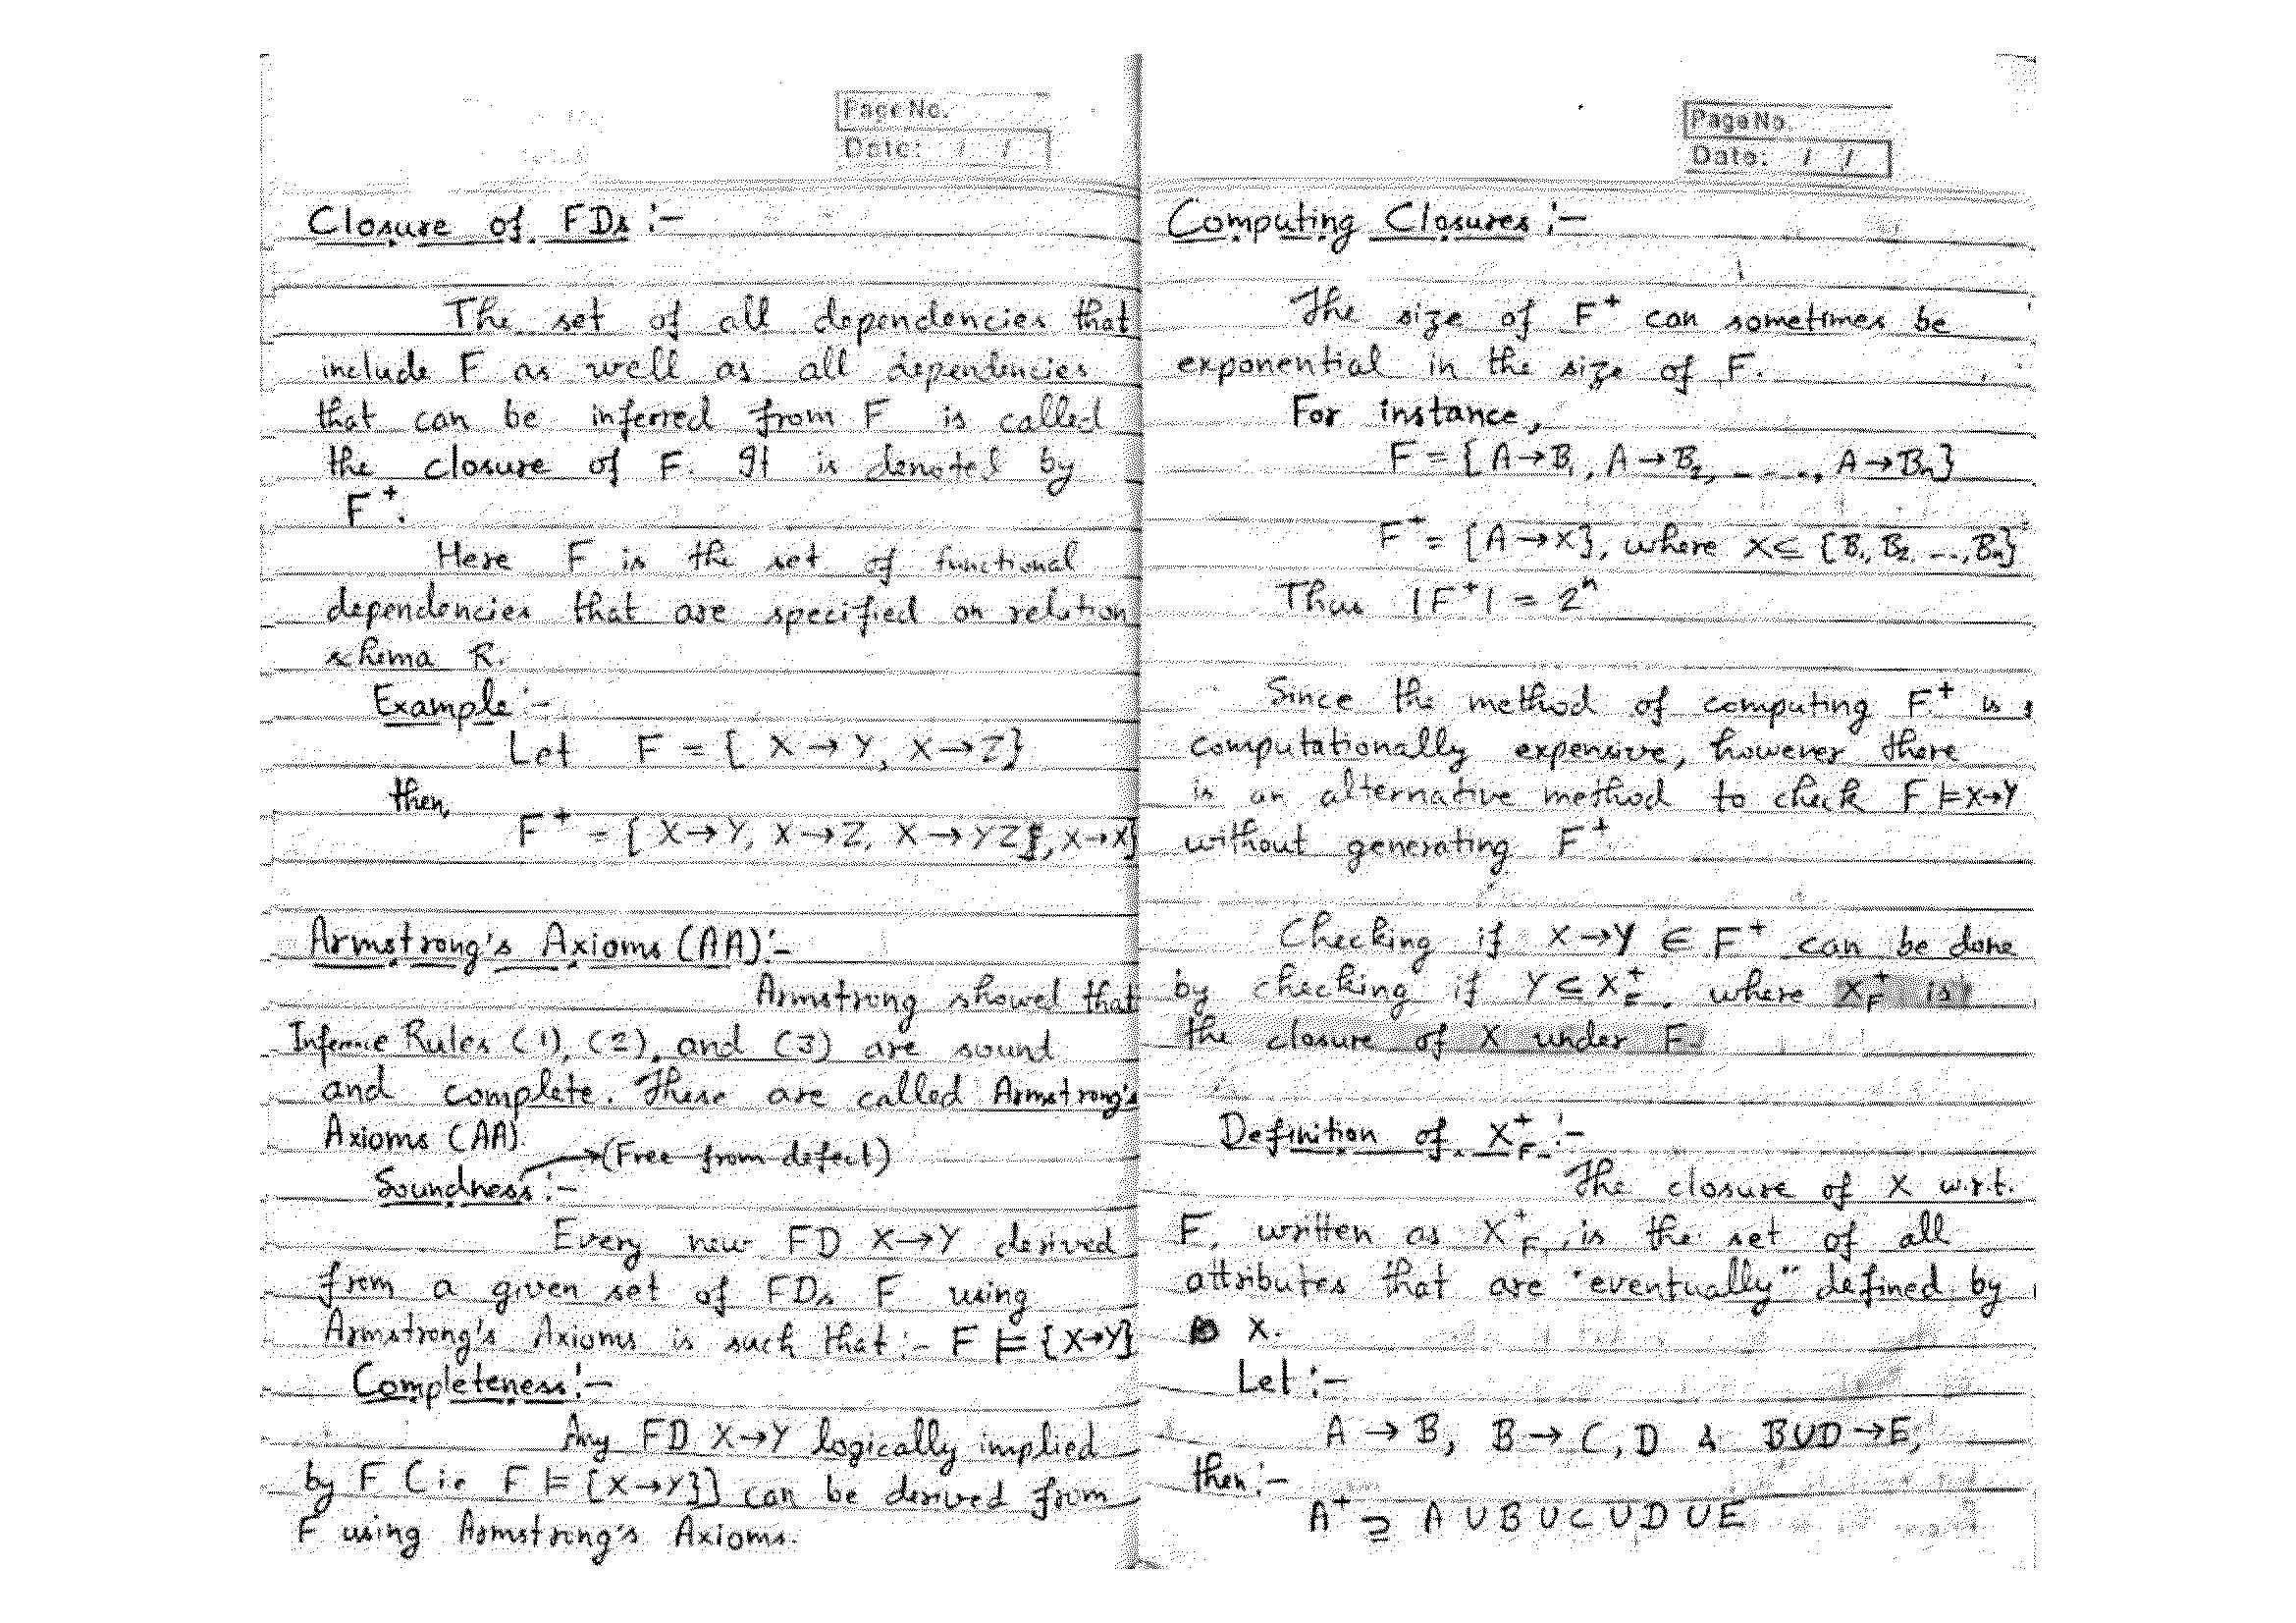 Page No.
Date: / /
Closure of FDs :-
The set of all dependencies that
include F as well as all dependencies
that can be inferred from F is called
the closure of F. It is denoted by
F⁺.
Here F is the set of functional
dependencies that are specified on relation
schema R.
Example :-
Let F = { X→Y, X→Z}
then,
F⁺ = { X→Y, X→Z, X→YZ, X→X}
Armstrong's Axioms (AA):-
Armstrong showed that
Inference Rules (1), (2), and (3) are sound
and complete. These are called Armstrong's
Axioms (AA).
→(Free from defect)
Soundness :-
Every new FD X→Y derived
from a given set of FDs F using
Armstrong's Axioms is such that :- F ⊨ {X→Y}
Completeness :-
Any FD X→Y logically implied
by F (i.e F ⊨ {X→Y}) can be derived from
F using Armstrong's Axioms.
Page No.
Date: / /
Computing Closures :-
The size of F⁺ can sometimes be
exponential in the size of F.
For instance,
F = { A→B₁, A→B₂, - - - -, A→Bₙ}
F⁺ = {A→X}, where X ⊆ {B₁, B₂ ..., Bₙ}
Thus |F⁺| = 2ⁿ
Since the method of computing F⁺ is
computationally expensive, however there
is an alternative method to check F ⊨ X→Y
without generating F⁺.
Checking if X→Y ∈ F⁺ can be done
by checking if Y ⊆ X_F⁺, where X_F⁺ is
the closure of X under F.
Definition of X_F⁺ :-
The closure of X w.r.t.
F, written as X_F⁺, is the set of all
attributes that are "eventually" defined by
X.
Let :-
A → B, B → C, D & BUD → E,
then :-
A⁺ ⊇ A U B U C U D U E